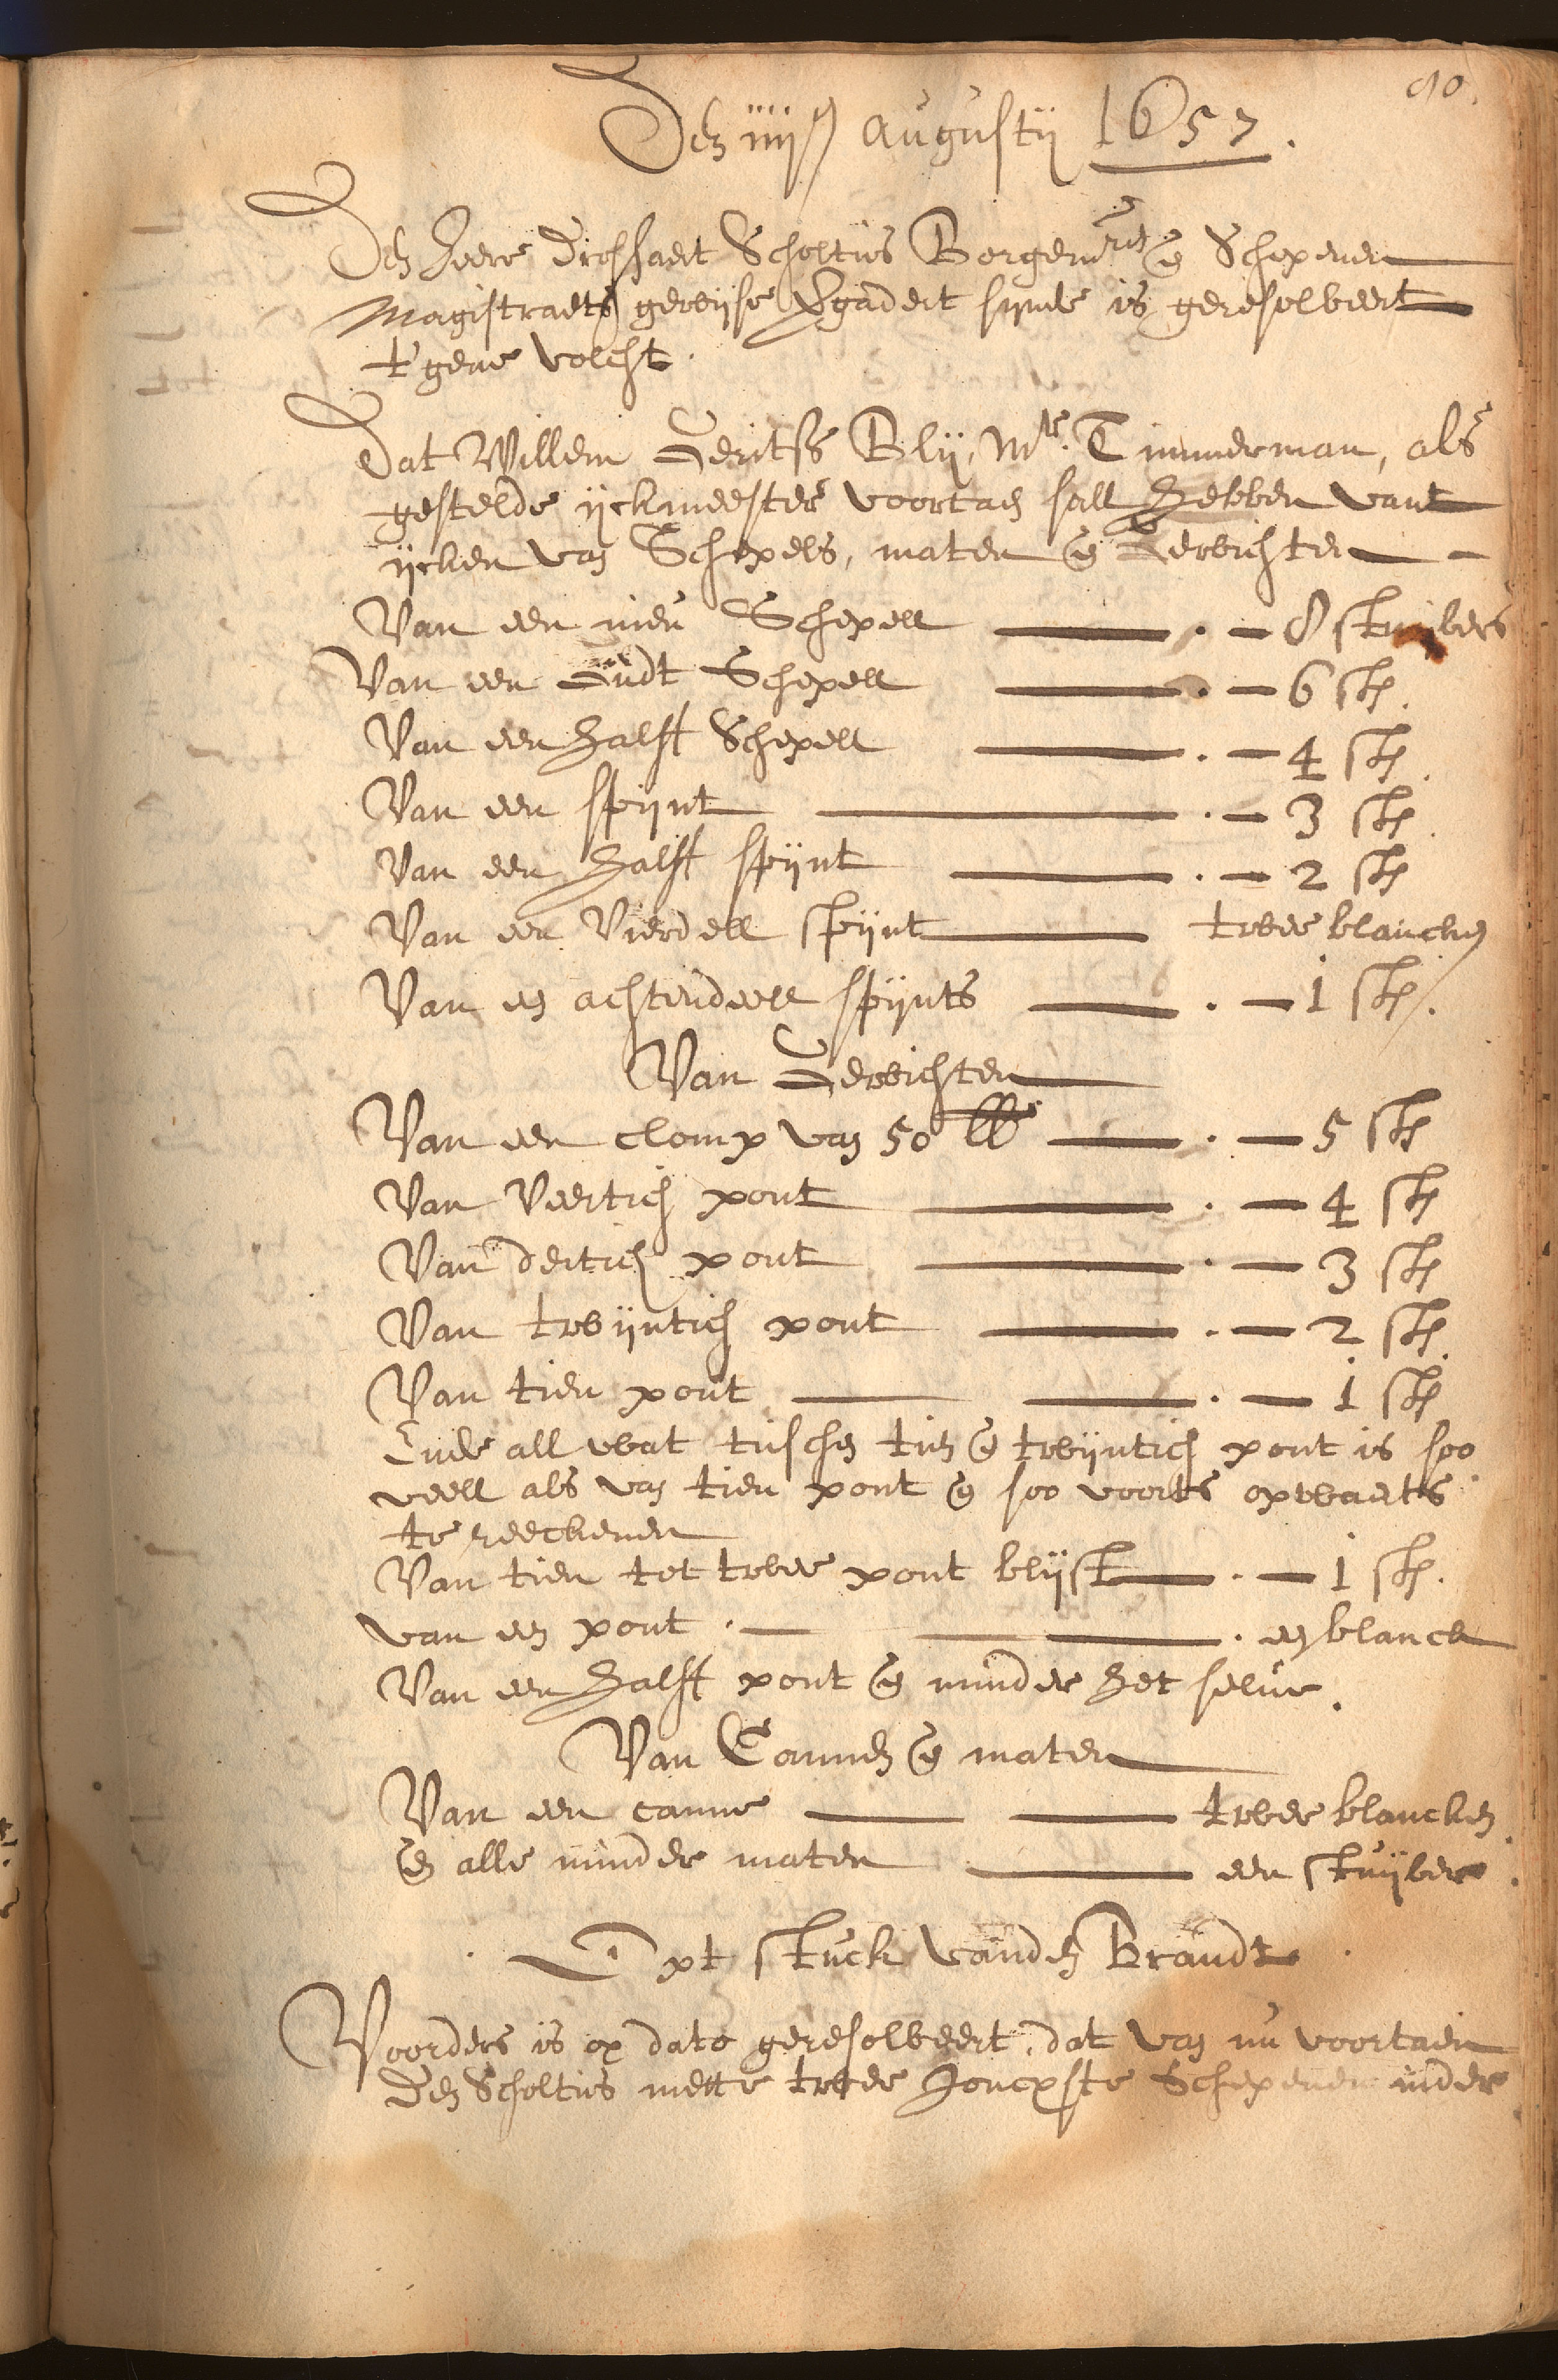 90.
Den iiijen Augustij 1657.
Den Heere Drossaert Scholtus Borgemrs en Schepenen
Magistraets gewijse vergadert sijnde is geresolveert
t'gene volcht.
Dat Willem Geritss Blij, Mr. Timmerman, als
gestelde ijckmeester voortan sall hebben vant
ijcken van Schepels, maten en Gewichten
Van een nieu Schepell . - 8 stuivers
Van een oudt Schepell . - 6 st.
Van een halft Schepell . - 4 st.
Van een spijnt . - 3 st.
Van een halft spijnt . - 2 st
Van een Vierdell spijnt twee blancken
Van en achtendeell spijnts . - 1 st.
Van Gewichten
Van een clomp van 50 lb . - 5 st
Van Veertich pont . - 4 st
Van dertich pont . - 3 st
Van twijntich pont . - 2 st.
Van tien pont . - 1 st
Ende all wat tuschen tien en twijntich pont is soo
veell als van tien pont en soo voorts opwaerts
te reeckenen
Van tien tot twee pont blijft . - 1 st.
van een pont . een blanck
Van een halft pont en minder het selve.
Van Cannen en maten
Van een canne twee blancken
En alle minder maten een stuijver.
Opt stuck vanden Brandt.
Voorders is op dato geresolveert, dat van nu voortaen
Den Scholtus mette twee Joncxste Schepenen inder